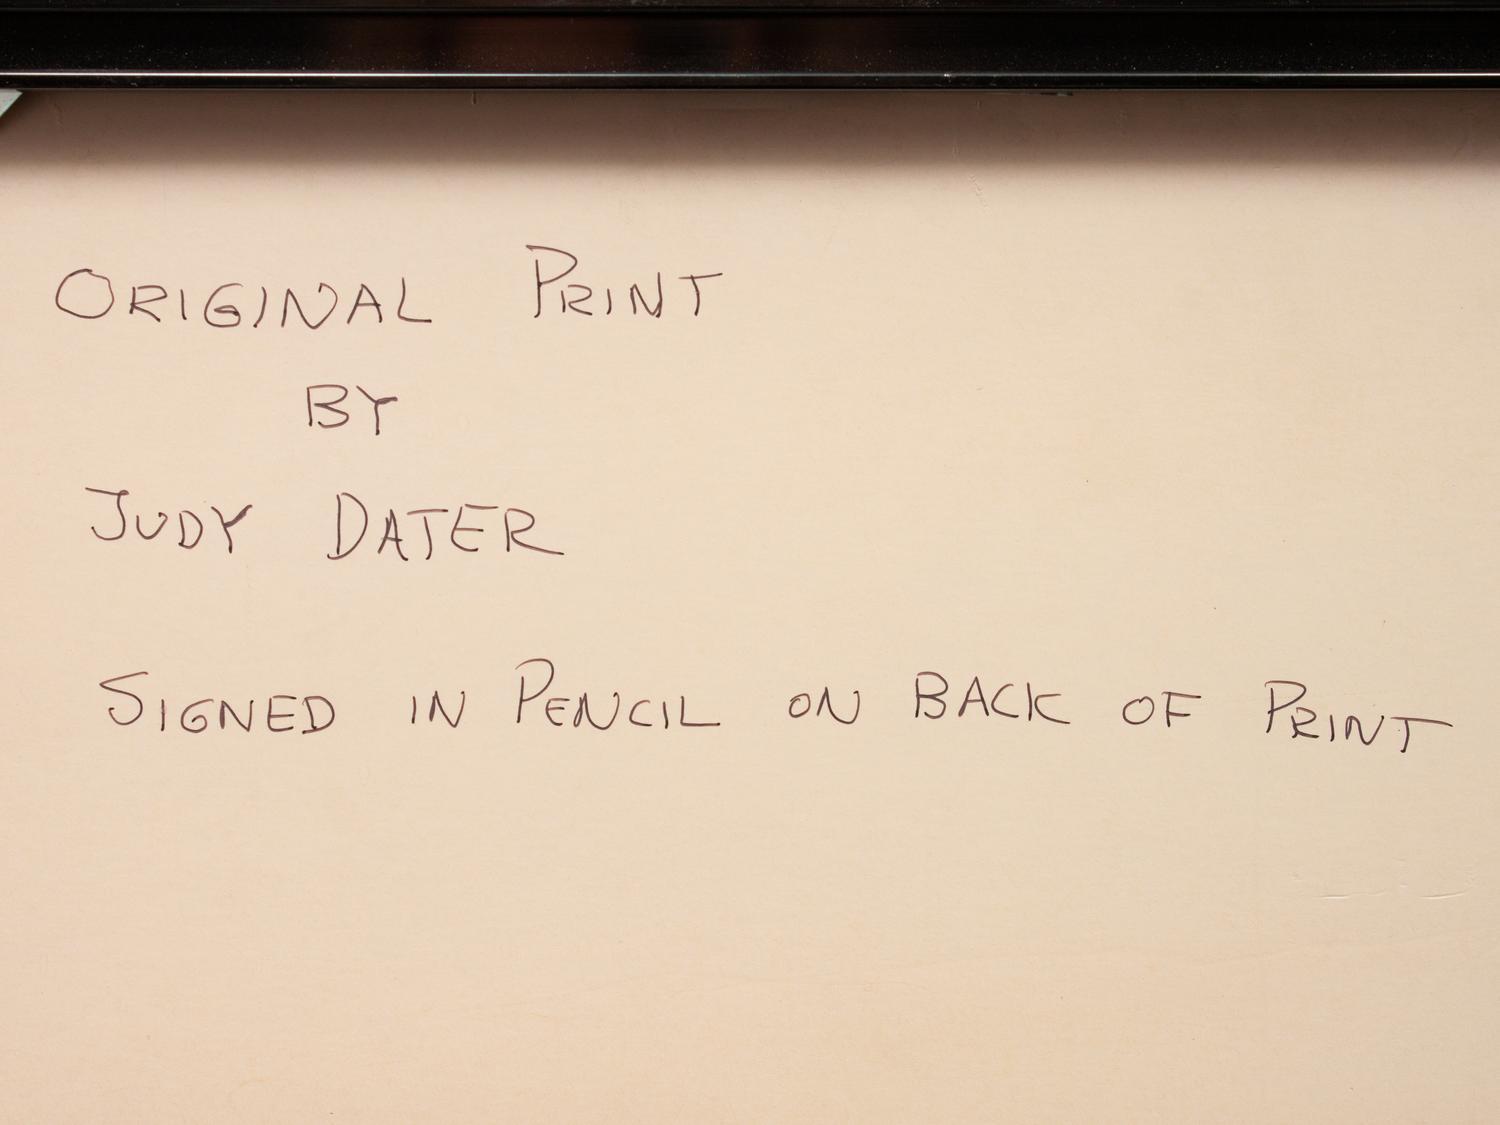 ORIGINAL PRINT
BY
JUDY DATER
SIGNED IN PENCIL ON BACK OF PRINT